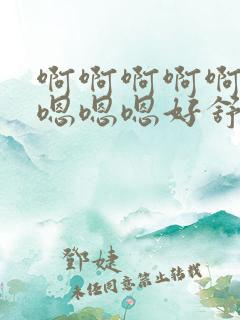 啊啊啊啊啊
嗯嗯嗯好舒
鄧婕
未任同意禁止转载